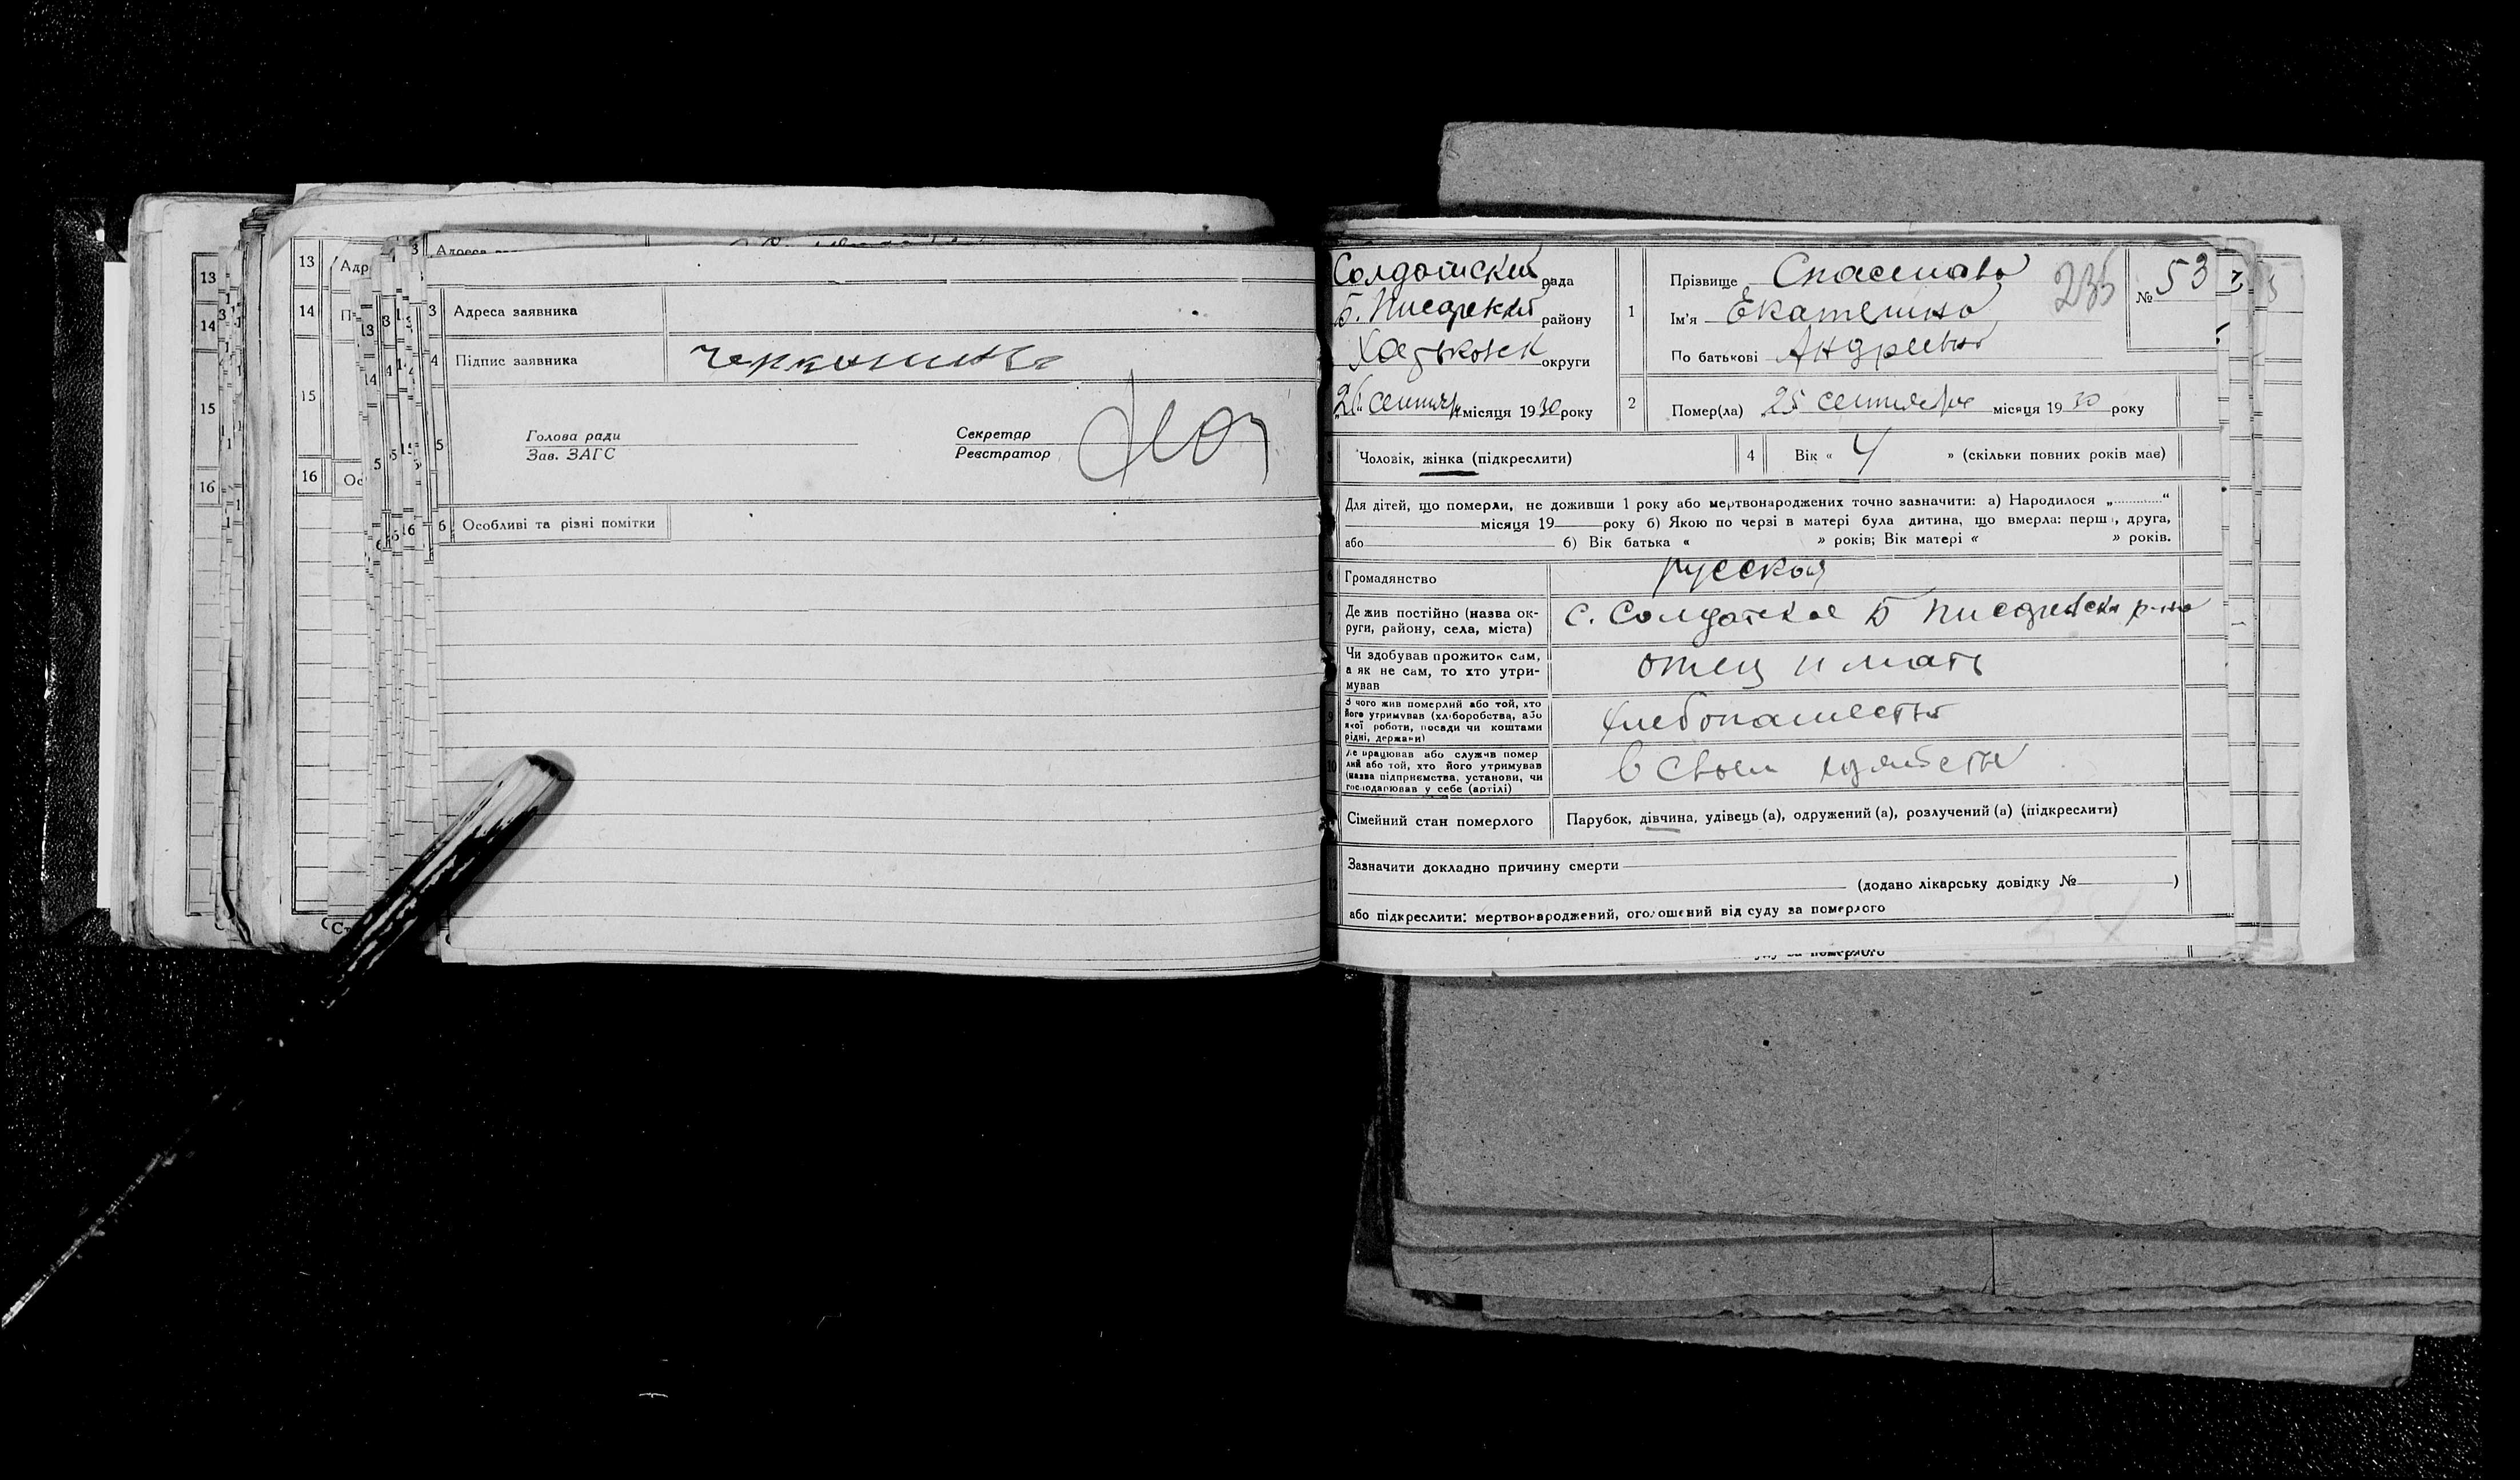 13
14
15
16
13
14
15
16
Адреса заявника
4 Підпис заявника
Голова ради
Зав. ЗАГС
Секретар
Реєстратор
5
6 Особливі та різні помітки
Солдатский рада
Б. Писарский району
округи
26 сентяр місяця 1930 року
1
Прізвище
Ім'я Екатерина
По батькові
235
№ 53
2 Помер(ла) 25 сентября місяця 19 30 року
Чоловік, жінка (підкреслити)
4 Вік « 4 » (скільки повних років має)
Для дітей, що померли, не доживши 1 року або мертвонароджених точно зазначити: а) Народилося „ “
місяця 19 року б) Якою по черзі в матері була дитина, що вмерла: перша, друга,
або б) Вік батька « » років; Вік матері « » років.
Громадянство русская
Де жив постійно (назва ок-
руги, району, села, міста)
с. Солдатское Б Писаревск р-на
Чи здобував прожиток сам,
а як не сам, то хто утри-
мував
отец и мать
З чого жив померлий або той, хто
його утримував (хліборобства, або
якої роботи, посади чи коштами
рідні, держави)
хлебопашество
Де працював або служив помер
лий або той, хто його утримував
(назва підприємства, установи, чи
господарював у себе (артілі)
в своем
Сімейний стан померлого
Парубок, дівчина, удівець (а), одружений (а), розлучений (а) (підкреслити)
12
Зазначити докладно причину смерти
(додано лікарську довідку № )
або підкреслити: мертвонароджений, оголошений від суду за померлого